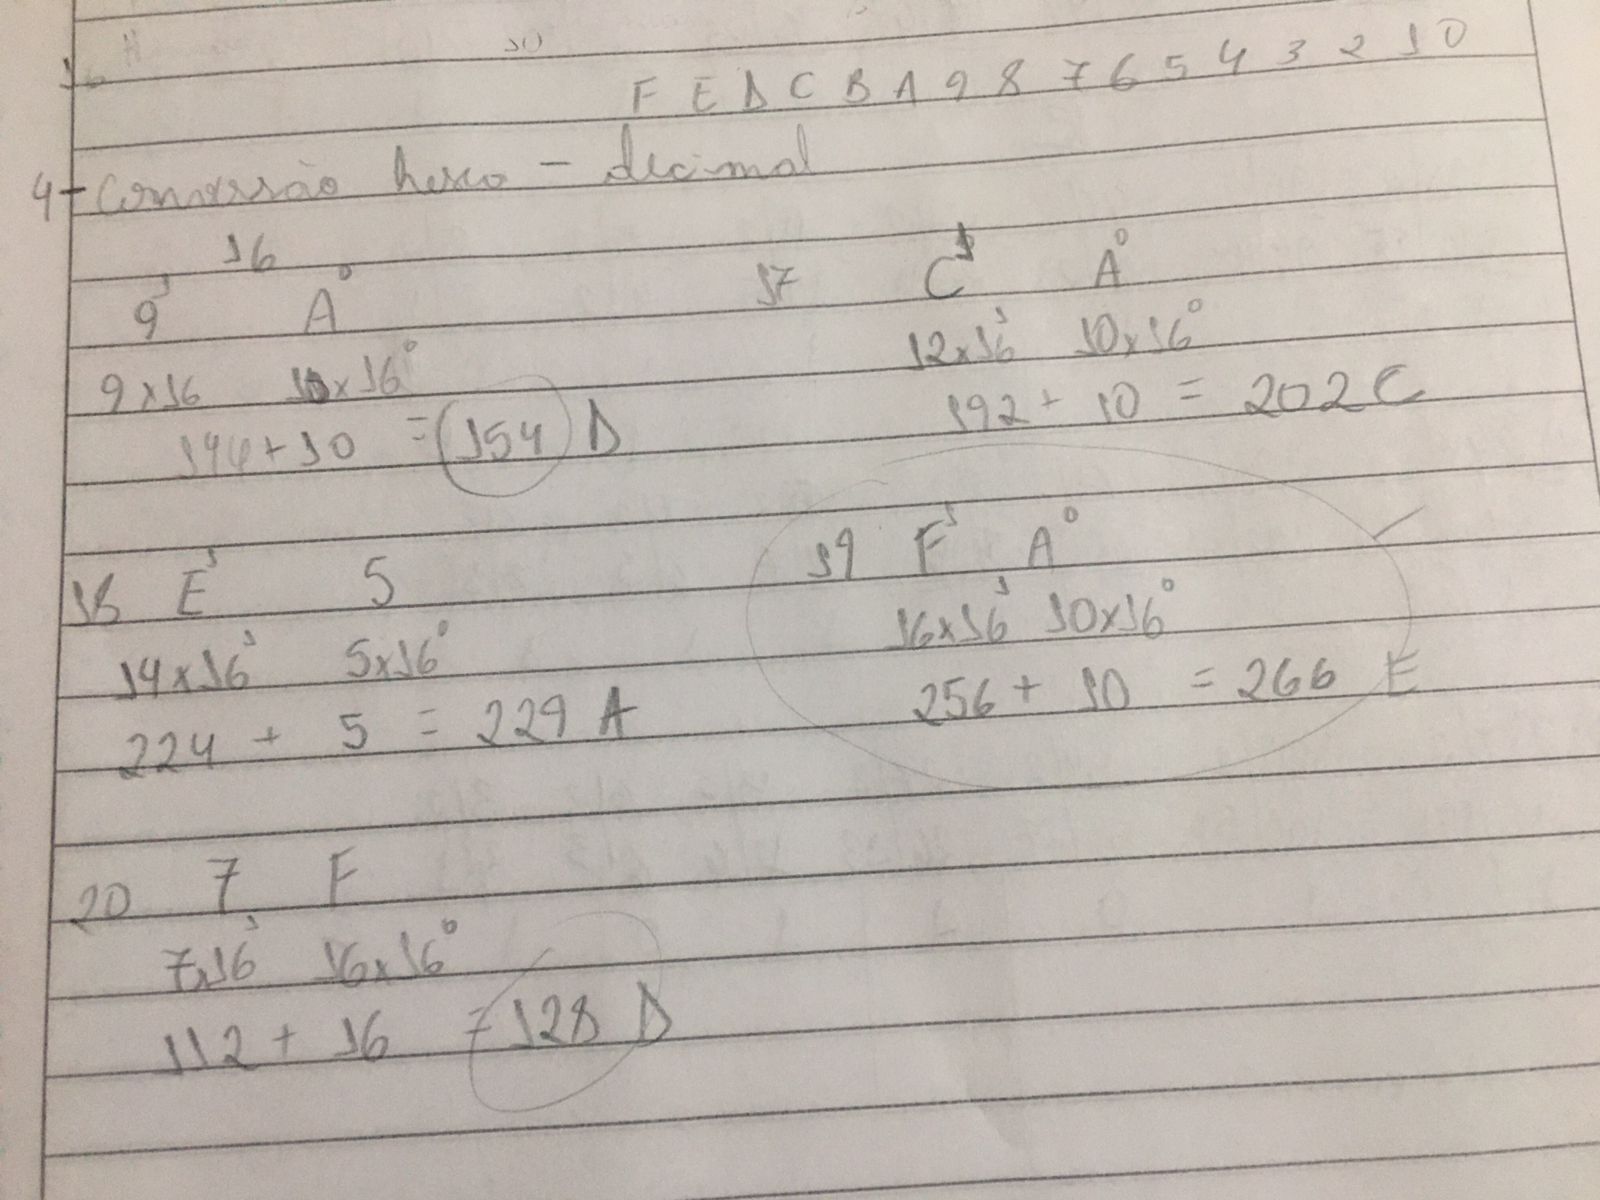 10
F E D C B A 9 8 7 6 5 4 3 2 1 0
4- Conversão hexa - decimal
16
9¹ A⁰
9x16 10x16⁰
144+10 = 154 D
17 C¹ A⁰
12x16¹ 10x16⁰
192 + 10 = 202 C
18 E¹ 5
14x16¹ 5x16⁰
224 + 5 = 229 A
19 F¹ A⁰
16x16¹ 10x16⁰
256 + 10 = 266 E
20 7 F
7x16¹ 16x16⁰
112 + 16 = 128 D